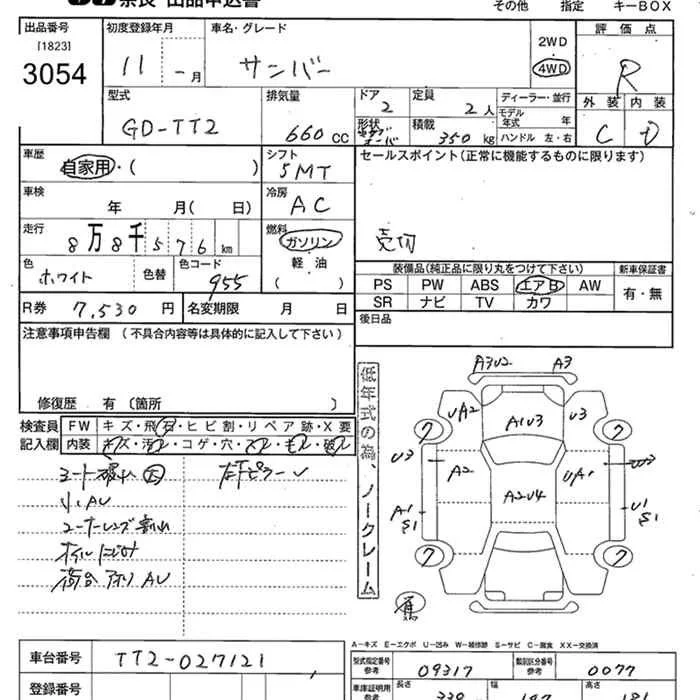 奈良 出品申込書
その他 指定 キーBOX
出品番号 初度登録年月 車名・グレード 評価点
[1823] 2WD
3054 11 - 月 サンバー 4WD R
型式 排気量 ドア 定員 ディーラー・並行 外装 内装
GD-TT2 660 cc 2 2人 モデル年式 年 C D
形状 積載 350 kg ハンドル 左・右
車歴 シフト セールスポイント(正常に機能するものに限ります)
自家用・( ) 5MT
車検 冷房
年 月( 日) AC
走行 燃料
8万8千576km ガソリン 売切
色 色替 色コード 軽・油
ホワイト 955 ( )
装備品(純正品に限り丸をつけて下さい) 新車保証書
PS PW ABS エアB AW 有・無
SR ナビ TV カワ
R券 7,530 円 名変期限 月 日
後日品
注意事項申告欄 (不具合内容等は具体的に記入して下さい)
修復歴 有 〔箇所 〕
検査員 FW キズ・飛石・ヒビ割・リペア跡・X要
記入欄 内装 キズ・汚れ・コゲ・穴・スレ・モレ・破れ
シート破れ 大
小、AU
コーナーレンズ割れ
荷台アオリ AU
低年式の為、ノークレーム
A3U2 A3
UA2 A1U3 U3
ワ ワ
U3 A2 UA1 W3
A2U4
A1 S1 U1 S1
ワ ワ
A-キズ E-エクボ U-凹み W-補修跡 S-サビ C-腐食 XX-交換済
車台番号 TT2-027121
型式指定番号 参考 09317 類別区分番号 参考 0077
登録番号
車庫証明用 参考 長さ 330 幅 高さ 181